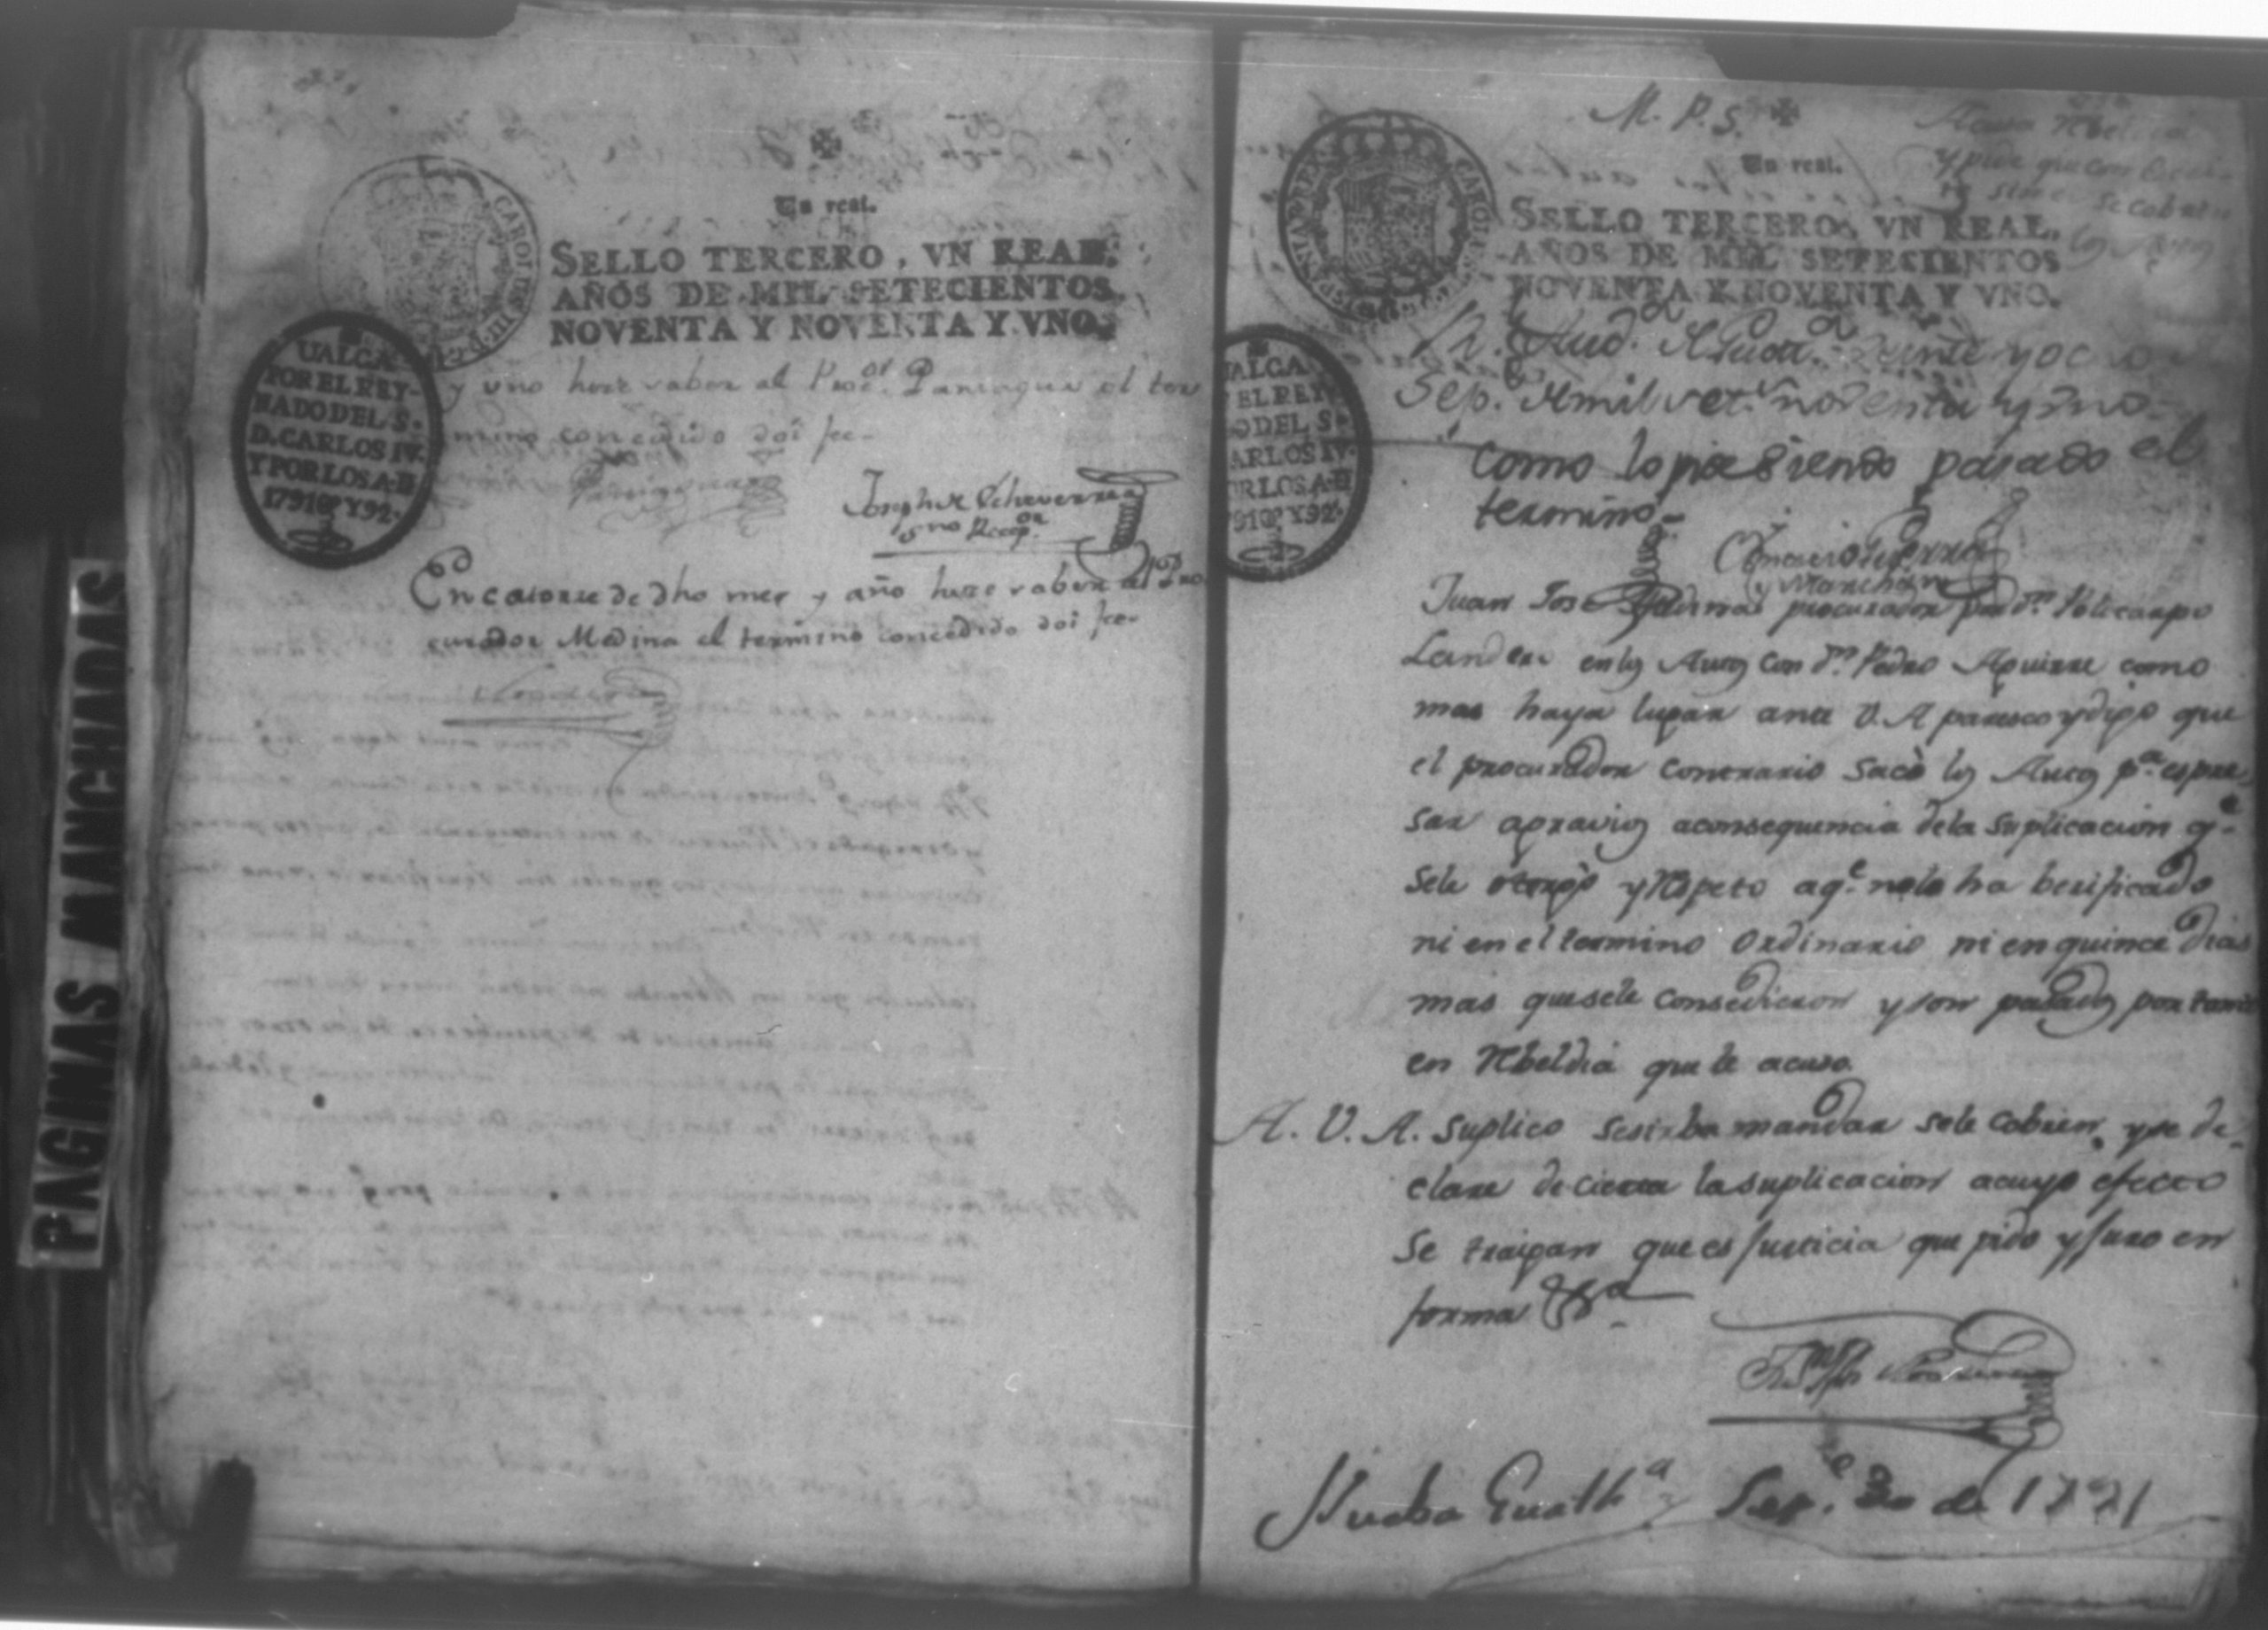 PAGINAS MANCHADAS
Un real.
SELLO TERCERO, VN REAL.
AÑOS DE MIL SETECIENTOS
NOVENTA Y NOVENTA Y VNO.
CAROLUS III
UALGA
POR EL REY-
NADO DEL S.
D. CARLOS IV.
Y POR LOS A.
1791 Y 92.
y uno hize saber al Proc.or Paniagua el ter
mino concedido doi fee-
Paniagua
Joseph de Echeverria
es.no Recep.or
En catorze de dho mes y año hize saber al Pro
curador Medina el termino concedido doi fee-
M. P. S.
Acusa Rbeldia
y pide que con
se cobren
los Autos
Un real.
SELLO TERCERO, VN REAL.
AÑOS DE MIL SETECIENTOS
NOVENTA Y NOVENTA Y VNO.
UALGA
EL REY
DO DEL S.
CARLOS IV.
POR LOS A.
1791 Y 92.
R.l Aud.a veinte y ocho
Sep.e mil set.s noventa y uno-
Como lo pide siendo pasado el
termino-
Ygnacio Guerra
y Marchan
Juan Jose procurador por d.n Policarpo
Landero en los Autos con d.n Pedro Aguirre como
mas haya lugar ante V. A paresco y digo que
el procurador contrario sacò los Autos p.a espre-
sar agravios aconsequencia dela suplicacion q.e
sele otorgò y Rspeto aq.e nola ha berificado
ni en el termino Ordinario ni en quince dias
mas quesele consedieron y son pasados por tanto
en Rbeldia que le acuso.
A. V. A. suplico sesirba mandar sele cobren, y se de-
clare decierta la suplicacion acuyo efecto
se traigan que es Justicia que pido y Juro en
forma &a
Nueba Guath.a Sep.e 30 de 1791